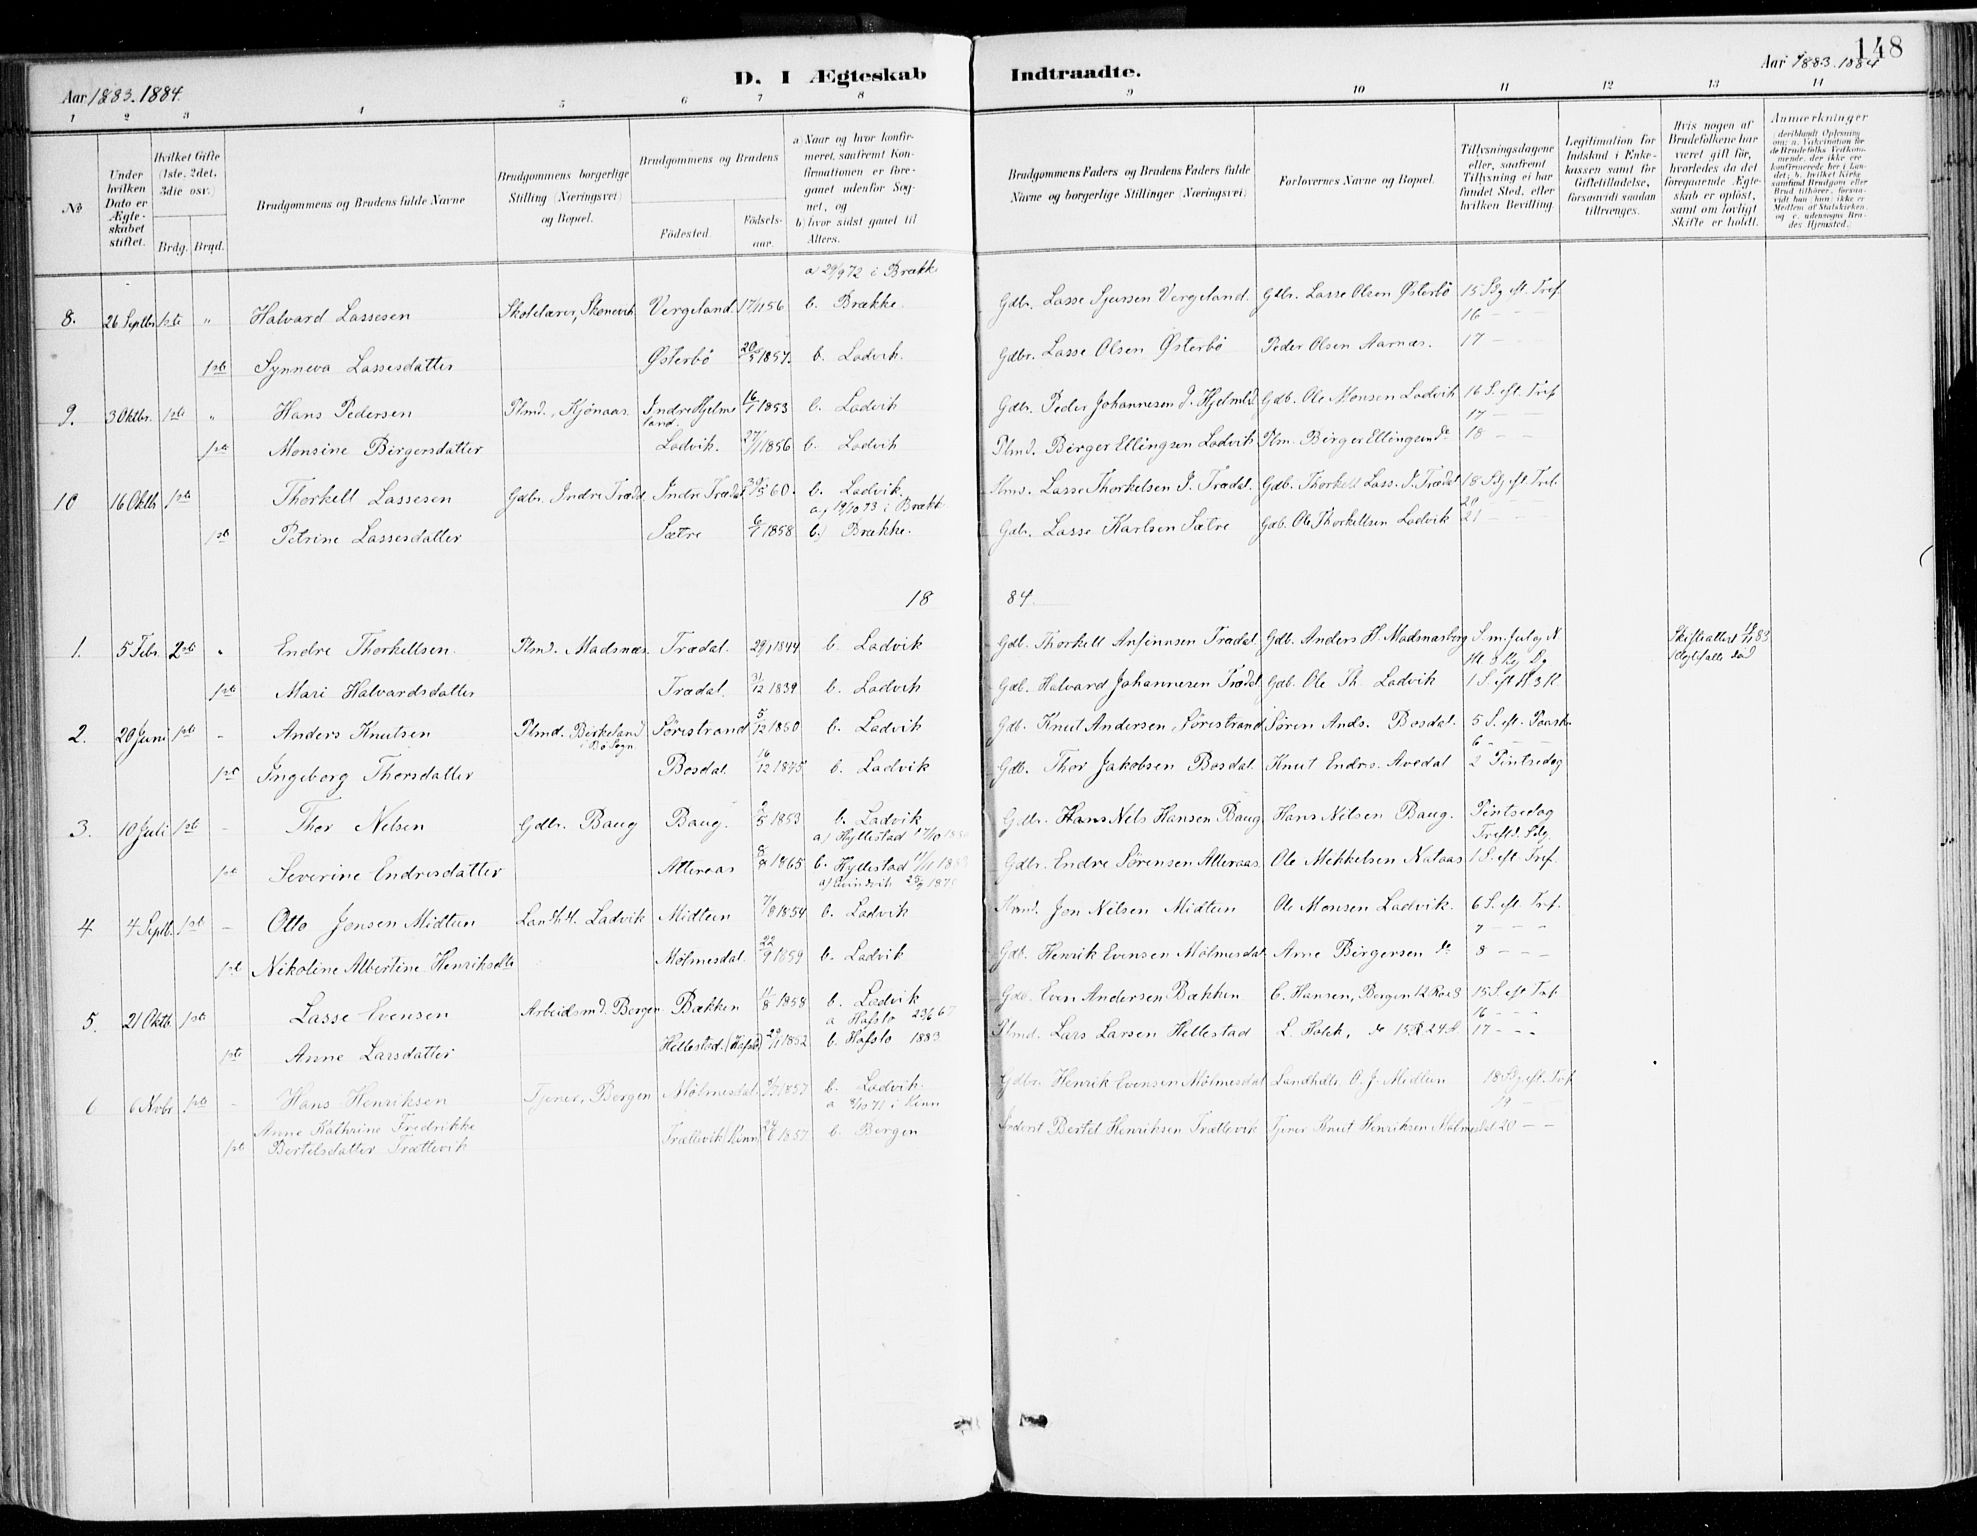 148
D. I Ægteskab Indtraadte.
Aar 1883. 1884.
Aar 1883. 1884
1 2 3 4 5 6 7 8 9 10 11 12 13 14
No
Under hvilken Dato er Ægteskabet stiftet.
Hvilket Gifte (1ste, 2det, 3die osv.)
Brdg. Brud.
Brudgommens og Brudens fulde Navne
Brudgommens borgerlige Stilling (Næringsvei) og Bopæl.
Brudgommens og Brudens
Fødested. Fødselsaar.
a) Naar og hvor konfirmeret, saafremt Konfirmationen er foregaaet udenfor Sognet, og
b) hvor sidst gaaet til Alters.
Brudgommens Faders og Brudens Faders fulde Navne og borgerlige Stillinger (Næringsvei)
Forlovernes Navne og Bopæl.
Tillysningsdagene eller, saafremt Tillysning ei har fundet Sted, efter hvilken Bevilling
Legitimation for Indskud i Enkekassen samt for Giftetilladelse, forsaavidt saadan tiltrænges.
Hvis nogen af Brudefolkene har været gift før, hvorledes da det foregaaende Ægteskab er opløst, samt om lovligt Skifte er holdt.
Anmærkninger
a) 29/9 72 i Brække
8. 26 Septbr 1ste " Halvard Lassesen Skolelærer, Skonevik Vergeland 17/11 56 b. Brække. Gdbr. Lasse Sjursen Vergeland. Gdbr. Lasse Olsen Østerbø 15 Sg eft. Tref.
16 - - -
1ste Synneva Lassesdatter Østerbø 20/5 1857. b. Ladvik. Gdbr. Lasse Olsen Østerbø Peder Olsen Aarnæs. 17 - - -
9. 3 Oktbr. 1ste " Hans Pedersen Plmd., Kjønaas. Indre Hjelmeland. 16/1 1853 b. Ladvik Gdbr. Peder Johannesen I. Hjelmld. Gdb. Ole Monsen Ladvik 16 S. eft. Tref
17 - -
1ste Monsine Birgersdatter Ladvik. 27/1 1856 b. Ladvik Plmd. Birger Ellingsen Ladvik Plm. Birger Ellingsen do 18 - -
10 16 Oktbr 1ste Thorkell Lassesen Gdbr. Indre Trædal Indre Trædal 30/5 60. b. Ladvik. Lasse Thorkelsen I. Trædal. Gdb. Thorkell Lass. I. Trædal 18 Sg eft Tref.
a) 19/10 73 i Brække 20
1ste Petrine Lassesdatter Sætre 6/1 1858 b) Brække. Gdbr. Lasse Karlsen Sætre Gdb. Ole Thorkellsen Ladvik 21 - - -
18 84.
1. 5 Febr. 2det " Endre Thorkellsen. Plmd. Madsnæs. Trædal. 29/1 1844 b. Ladvik Gdb. Thorkell Anfinnsen Trædal Gdb. Anders H. Madsnasberg S. m. Jul og N
Skifteattest 18/11 83
1ste Mari Halvardsdatter Trædal. 31/12 1839 b. Ladvik Gdb. Halvard Johannesen Trædal Gdb. Ole Th. Ladvik 1 S. eft H 3 K
2. 20 Juni 1ste - Anders Knutsen Plmd. Birkeland i Bø Sogn Sørestrand 5/12 1850 b. Ladvik Gdb. Knut Andersen, Sørestrand Søren Ands. Bosdal. 5 S. eft. Paaske
6 - - -
1ste Ingeborg Thorsdatter Bosdal 16/12 1845 b. Ladvik Gdb. Thor Jakobsen Bosdal. Knut Endres. Avedal 2 Pintsedag
3. 10 Juli 1ste - Thor Nilsen Gdbr. Baug Baug. 2/5 1853 b. Ladvik Gdbr. Hans Nils Hansen Baug Hans Nilsen Baug. Pintsedag
a) Hyllestad 17/10 Trefd. Sdg.
1ste Severine Endresdatter Atteraas 1865 b. Hyllestad Gdbr. Endre Sørensen Atteraas Ole Mikkelsen Nataas 1 S. eft Tref.
4. 4 Septb. 1ste - Otto Jonsen Midtun Landh. Ladvik Midtun 7/8 1854 b. Ladvik Jon Nilsen Midtun Ole Monsen Ladvik. 6 S. eft. Tref.
7 - - -
1ste Nikoline Albertine Henriksdtr Mølmesdal. 22/9 1859 b. Ladvik Gdb. Henrik Evensen Mølmesdal Arne Birgersen do 8 - - -
5. 21 Oktb. 1ste Lasse Evensen Arbeidsmd. Bergen Bækken 11/8 1858 b. Ladvik Gdb. Even Andersen Bækken C. Hansen, Bergen 12 Rode 8 15 S. eft Tref.
a Hafslo 23/6 67 16 - - -
1ste Anne Larsdatter Hillestad (Hafslo) 29/11 1852 b. Hafslo 1883 Plmd. Lars Larsen Hillestad L. Holck, do 15 R 24 17 - - -
6 6 Novbr 1ste - Hans Henriksen Tjener, Bergen Mølmesdal 1857 b. Ladvik. Gdbr. Henrik Evensen Mølmesdal Landhdlr. O. J. Midtun 18 Sg eft. Tref
a 8/10 71 i Kinn 19 - -
1ste Anne Kathrine Fredrikke Bertelsdatter Trættevik Trættevik (Kinn) 1857. b. Bergen Inderst Bertel Henriksen Trættevik Tjener Knut Henriksen Mølmesdal 20 - -